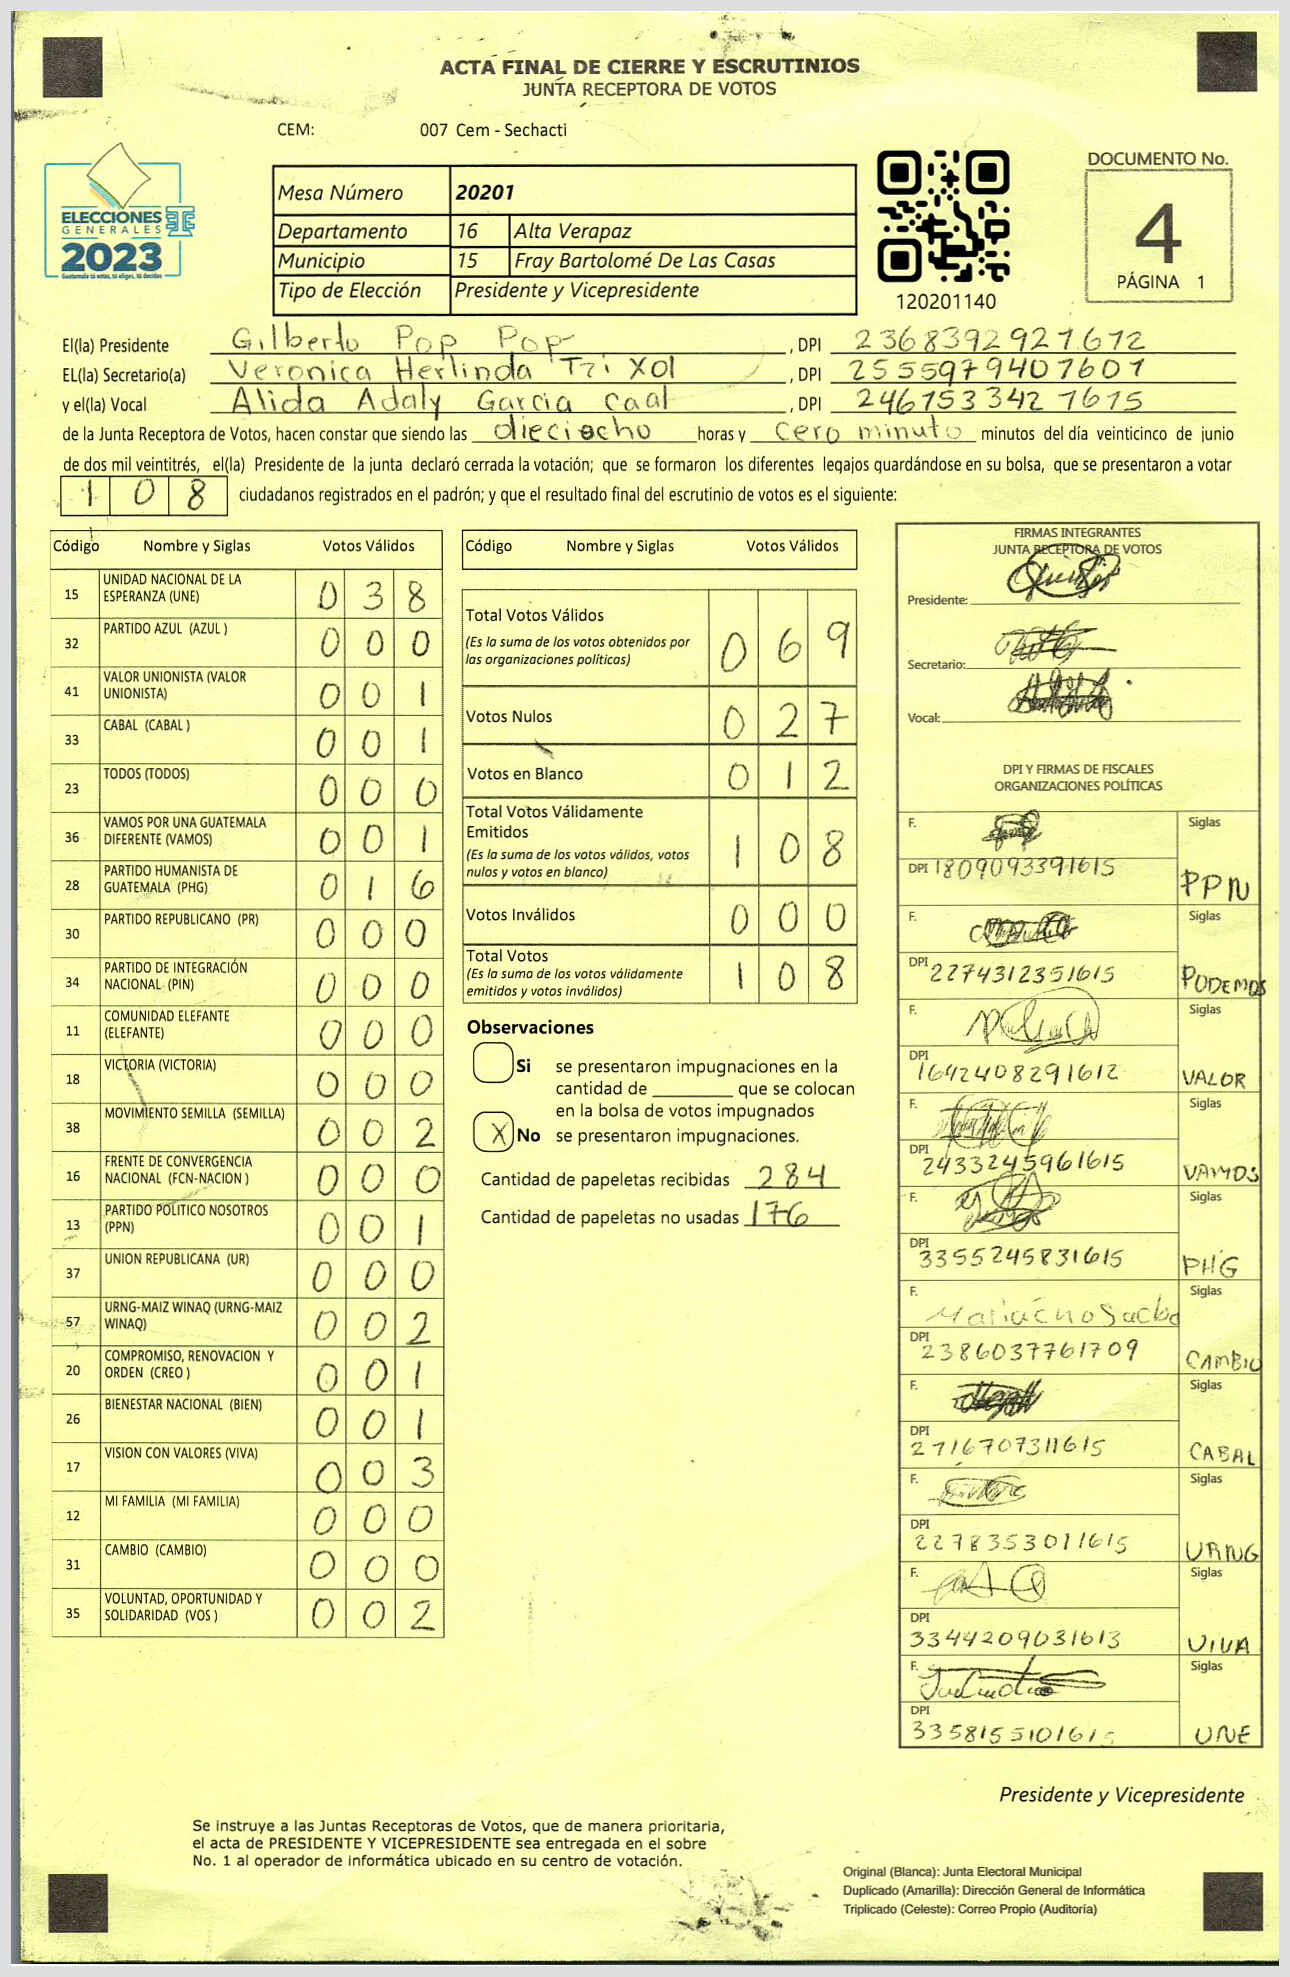 ACTA FINAL DE CIERRE Y ESCRUTINIOS
JUNTA RECEPTORA DE VOTOS
CEM: 007 Cem - Sechacti
ELECCIONES
GENERALES
2023
Guatemala tú votas, tú eliges, tú decides
Mesa Número 20201
Departamento 16 Alta Verapaz
Municipio 15 Fray Bartolomé De Las Casas
Tipo de Elección Presidente y Vicepresidente
120201140
DOCUMENTO No.
4
PÁGINA 1
El(la) Presidente Gilberto Pop Pop, DPI 2368392921612
EL(la) Secretario(a) Veronica Herlinda Tzi Xol, DPI 2555979407601
y el(la) Vocal Alida Adaly Garcia Caal, DPI 2467533421615
de la Junta Receptora de Votos, hacen constar que siendo las dieciocho horas y cero minuto minutos del día veinticinco de junio
de dos mil veintitrés, el(la) Presidente de la junta declaró cerrada la votación; que se formaron los diferentes legajos guardándose en su bolsa, que se presentaron a votar
108 ciudadanos registrados en el padrón; y que el resultado final del escrutinio de votos es el siguiente:
Código Nombre y Siglas Votos Válidos
15 UNIDAD NACIONAL DE LA ESPERANZA (UNE) 0 3 8
32 PARTIDO AZUL (AZUL ) 0 0 0
41 VALOR UNIONISTA (VALOR UNIONISTA) 0 0 1
33 CABAL (CABAL ) 0 0 1
23 TODOS (TODOS) 0 0 0
36 VAMOS POR UNA GUATEMALA DIFERENTE (VAMOS) 0 0 1
28 PARTIDO HUMANISTA DE GUATEMALA (PHG) 0 1 6
30 PARTIDO REPUBLICANO (PR) 0 0 0
34 PARTIDO DE INTEGRACIÓN NACIONAL (PIN) 0 0 0
11 COMUNIDAD ELEFANTE (ELEFANTE) 0 0 0
18 VICTORIA (VICTORIA) 0 0 0
38 MOVIMIENTO SEMILLA (SEMILLA) 0 0 2
16 FRENTE DE CONVERGENCIA NACIONAL (FCN-NACION ) 0 0 0
13 PARTIDO POLITICO NOSOTROS (PPN) 0 0 1
37 UNION REPUBLICANA (UR) 0 0 0
57 URNG-MAIZ WINAQ (URNG-MAIZ WINAQ) 0 0 2
20 COMPROMISO, RENOVACION Y ORDEN (CREO ) 0 0 1
26 BIENESTAR NACIONAL (BIEN) 0 0 1
17 VISION CON VALORES (VIVA) 0 0 3
12 MI FAMILIA (MI FAMILIA) 0 0 0
31 CAMBIO (CAMBIO) 0 0 0
35 VOLUNTAD, OPORTUNIDAD Y SOLIDARIDAD (VOS ) 0 0 2
Código Nombre y Siglas Votos Válidos
Total Votos Válidos 0 6 9
(Es la suma de los votos obtenidos por
las organizaciones políticas)
Votos Nulos 0 2 7
Votos en Blanco 0 1 2
Total Votos Válidamente
Emitidos 1 0 8
(Es la suma de los votos válidos, votos
nulos y votos en blanco)
Votos Inválidos 0 0 0
Total Votos 1 0 8
(Es la suma de los votos válidamente
emitidos y votos inválidos)
Observaciones
Si se presentaron impugnaciones en la
cantidad de ________ que se colocan
en la bolsa de votos impugnados
X No se presentaron impugnaciones.
Cantidad de papeletas recibidas 284
Cantidad de papeletas no usadas 176
FIRMAS INTEGRANTES
JUNTA RECEPTORA DE VOTOS
Presidente:
Secretario:
Vocal:
DPI Y FIRMAS DE FISCALES
ORGANIZACIONES POLÍTICAS
F. Siglas
DPI 1809093391615 PPN
F. Siglas
DPI 2274312351615 PODEMOS
F. Siglas
DPI 1642408291612 VALOR
F. Siglas
DPI 2433245961615 VAMOS
F. Siglas
DPI 3355245831615 PHG
F. Siglas
DPI 2386037761709 CAMBIO
F. Siglas
DPI 2716707311615 CABAL
F. Siglas
DPI 2278353011615 URNG
F. Siglas
DPI 3344209031613 VIVA
F. Siglas
DPI UNE
Presidente y Vicepresidente
Se instruye a las Juntas Receptoras de Votos, que de manera prioritaria,
el acta de PRESIDENTE Y VICEPRESIDENTE sea entregada en el sobre
No. 1 al operador de informática ubicado en su centro de votación.
Original (Blanca): Junta Electoral Municipal
Duplicado (Amarilla): Dirección General de Informática
Triplicado (Celeste): Correo Propio (Auditoría)